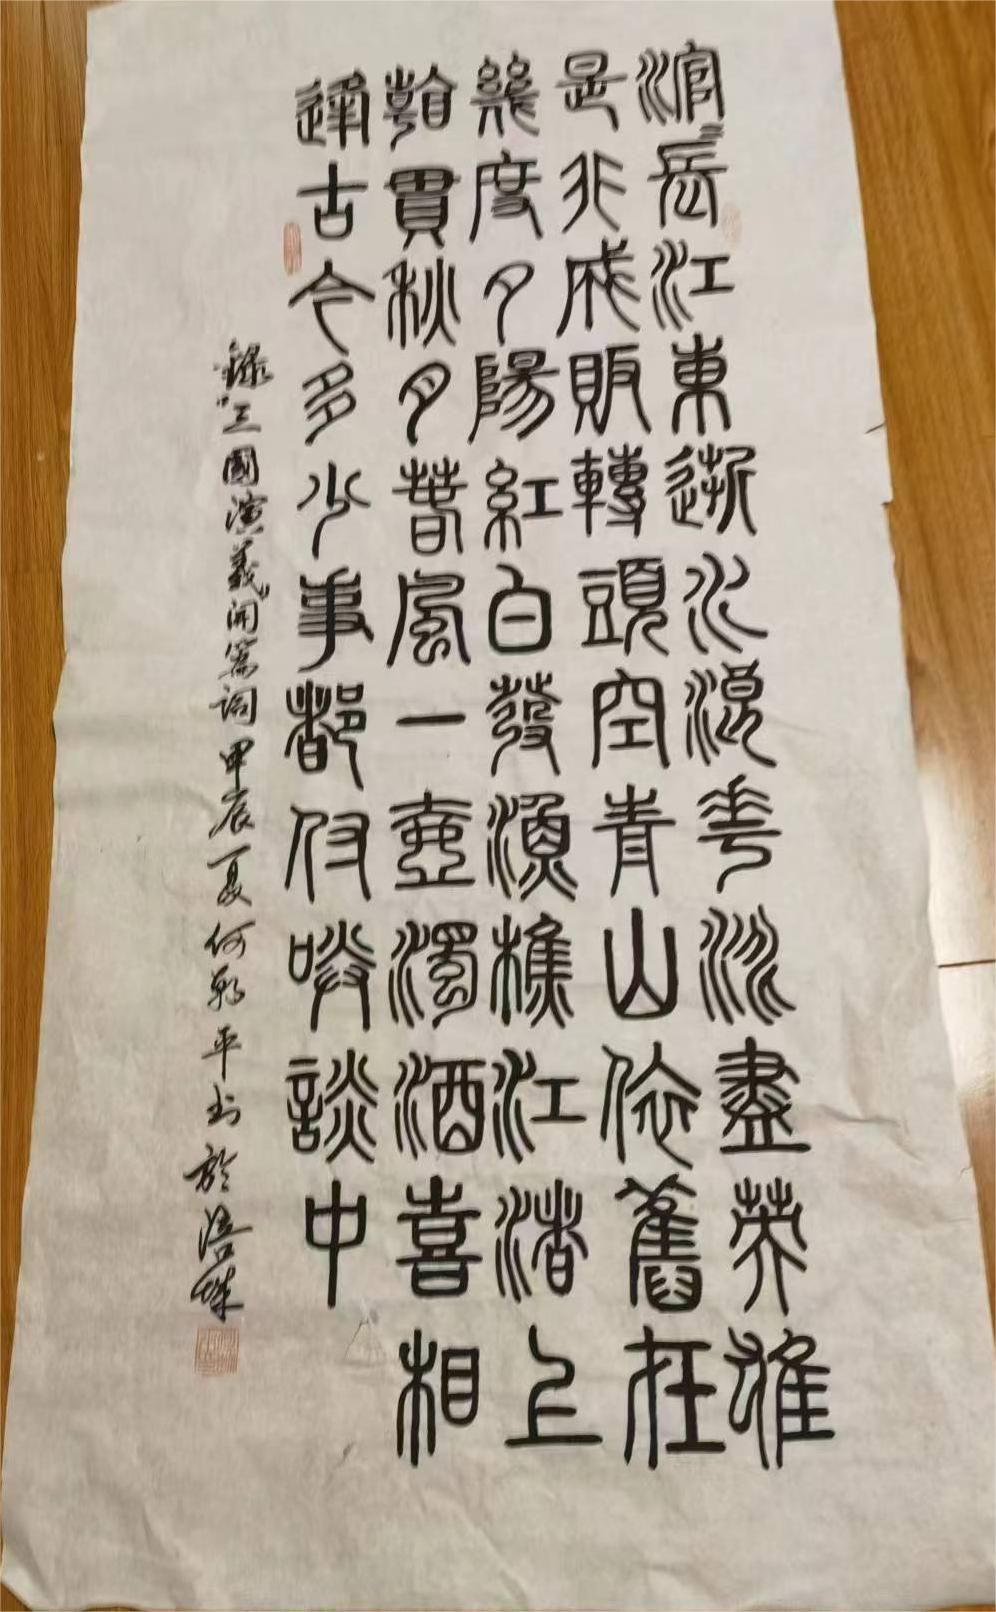 滾〻長江東逝水浪花淘盡英雄
是非成敗轉頭空青山依舊在
幾度夕陽紅白發漁樵江渚上
看貫秋月春風一壺濁酒喜相
逢古今多少事都付咲談中
錄"三國演義"開篇詞甲辰夏何平書於涪城